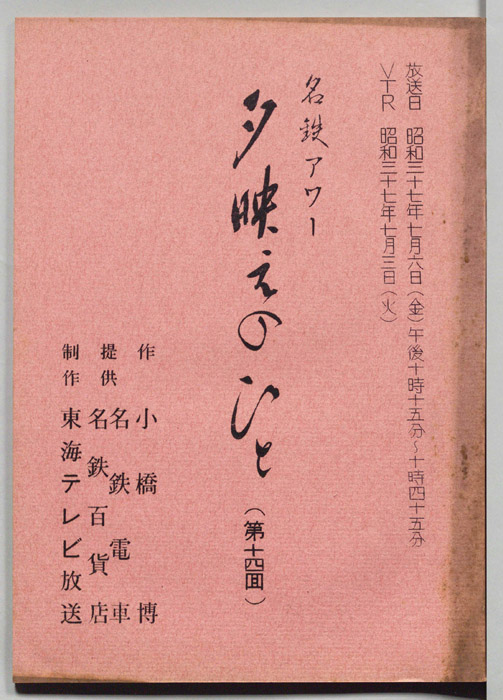 放送日 昭和三十七年七月六日(金)午後十時十五分~十時四十五分
VTR 昭和三十七年七月三日(火)
名鉄アワー
夕映えのひと(第十四回)
作 小橋博
提供 名鉄電車
名鉄百貨店
制作 東海テレビ放送